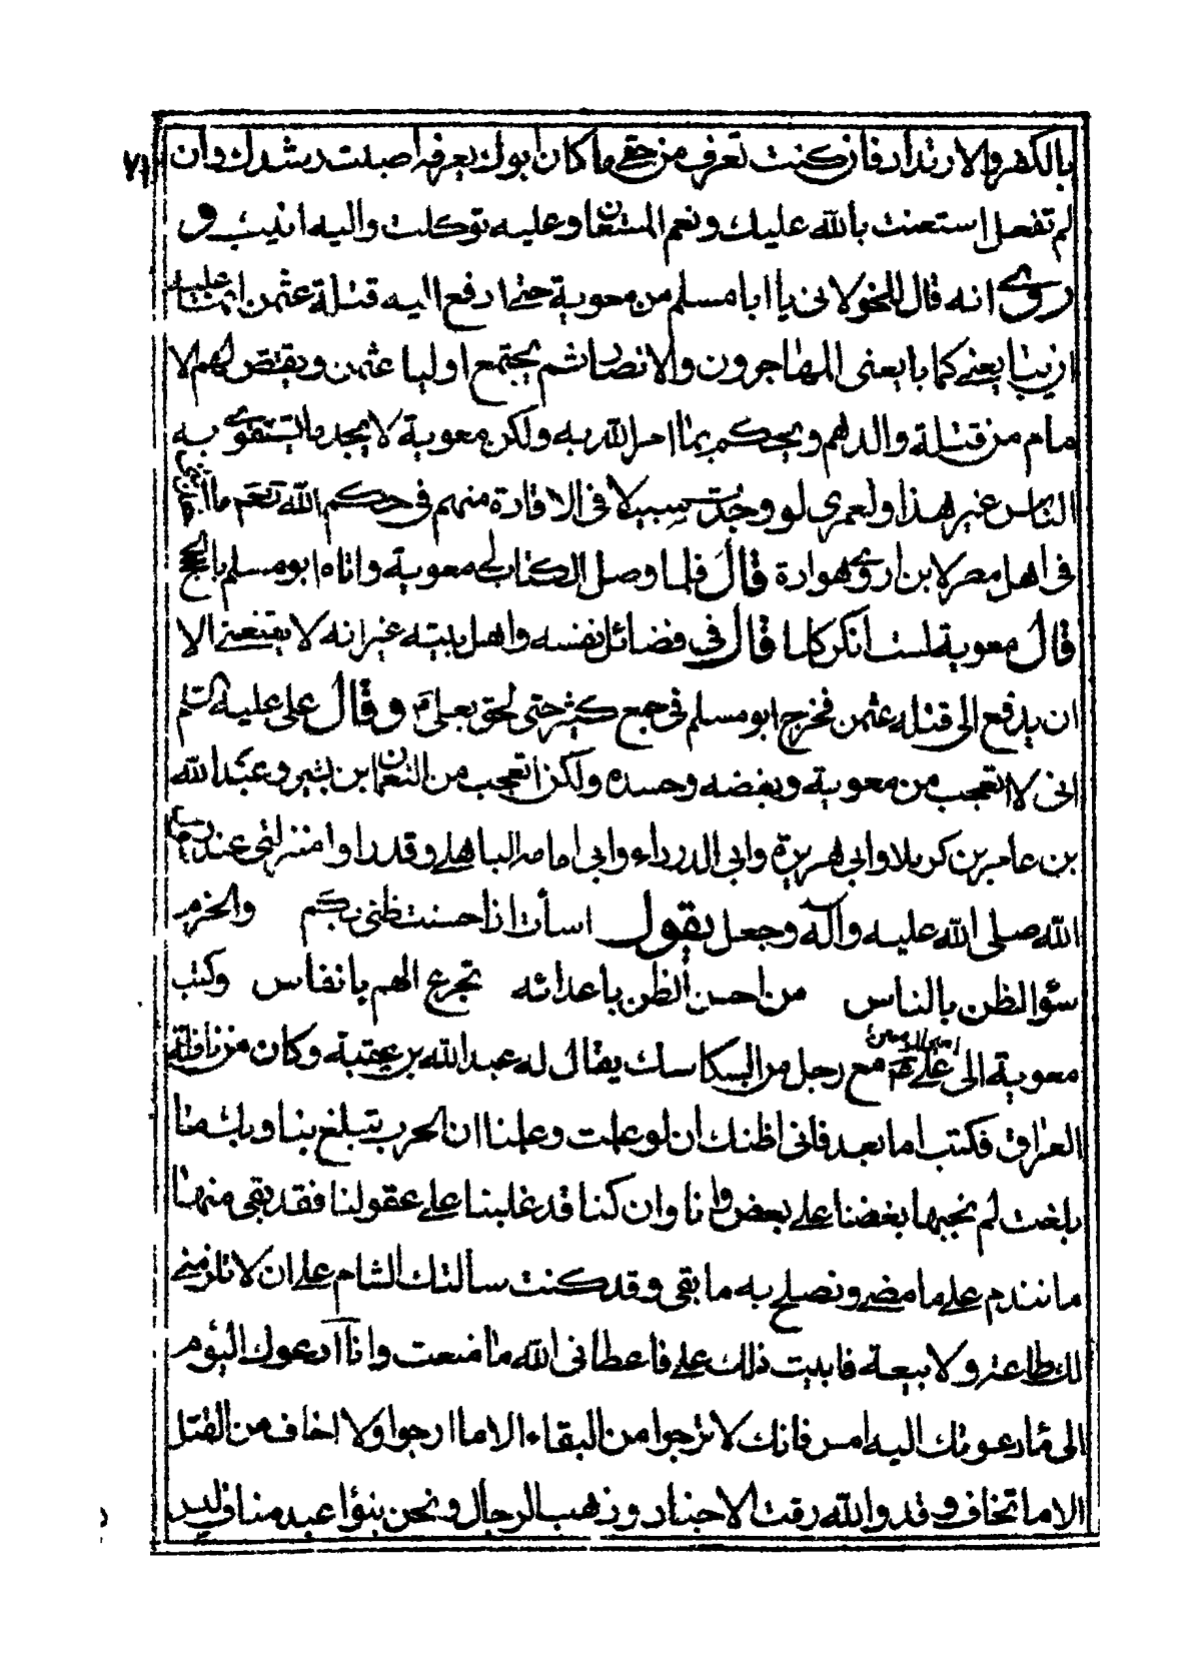 بالكفر والارتداد فان كنت تعرف من حقى ما كان ابوك يعرفه اصبت رشدك وان
لم تفعل استعنت بالله عليك ونعم المستعان وعليه توكلت واليه انيب و
روى انه قال للخولانى يا ابا مسلم من معوية حتى ادفع اليه قتلة عثمن
يعنى كما بايعنى المهاجرون والانصار ثم يجتمع اوليا عثمن ويقتص لهم الا
مام من قتلة والدهم ويحكم بما امر الله به ولكن معوية لا يجد ما يستغوى به
الناس غير هذا ولعمرى لو وجدت سبيلا فى الاقادة منهم فى حكم الله نعم ما
فى اهل مصر لابن اروى هوادة قال فلما وصل الكتاب الى معوية واتاه ابو مسلم بالحجج
قال معوية لست انكر كلما قال فى فضائل نفسه واهل بيته غير انه لا يقنعنى الا
ان يدفع الى قتله عثمن فخرج ابو مسلم فى جمع كثير حتى لحق بعلى وقال على عليه السلم
انى لا اتعجب من معوية وبغضه وحسده ولكن اتعجب من النعمان ابن بشير وعبد الله
بن عامر بن كريلا وابى هريرة وابى الدرداء وابى امامه الباهلى وقد راوا منزلتى عند رسول
الله صلى الله عليه وآله وجعل يقول اسأت اذا حسنت ظنى بكم والحزم
سؤ الظن بالناس من احسن الظن باعدائه تجرع الهم بانفاس وكتب
معوية الى امير المومنين على مع رجل من السكاسك يقال له عبد الله بن عقبة وكان من ناقلة
العراق فكتب اما بعد فانى اظنك ان لو علمت وعلمنا ان الحرب تبلغ بنا وبك ما
بلغت لم يجبها بعضنا على بعض وانا وان كنا قد غلبنا على عقولنا فقد بقى منها
ما نندم على ما مضى ونصلح به ما بقى وقد كنت سالتك الشام على ان لا تلزمنى
لك طاعة ولا بيعة فابيت ذلك على فاعطانى الله ما منعت وانا ادعوك اليوم
الى ما دعوتك اليه امس فانك لا ترجوا من البقاء الا ما ارجوا ولا اخاف من القتل
الا ما تخاف وقد والله رقت الاجناد وذهب الرجال ونحن بنوا عبد مناف ليس